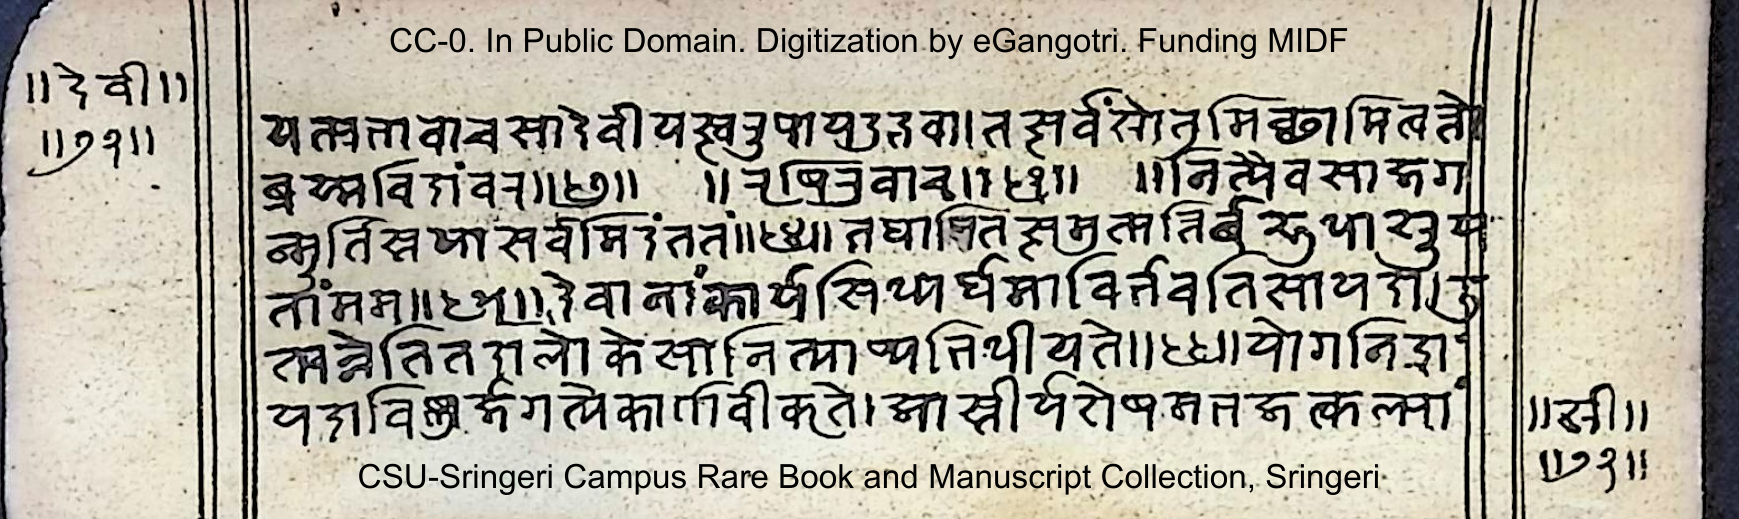 CC-0. In Public Domain. Digitization by eGangotri. Funding MIDF
॥देवी॥
॥७१॥
यत्प्रभावा च सा देवी यत्स्वरूपा यदुद्भवा। तत्सर्वं श्रोतुमिच्छामि त्वत्तो
ब्रह्मविदां वर॥६३॥ ॥ऋषिरुवाच॥ ॥नित्यैव सा जग
न्मूर्तिस्तया सर्वमिदं ततं॥६४॥ तथापि तत्समुत्पत्तिर्बहुधा श्रूय
तां मम॥६५॥ देवानां कार्यसिध्यर्थमाविर्भवति सा यदा। उ
त्पन्नेति तदा लोके सा नित्याप्यभिधीयते॥६६॥ योगनिद्रां
यदा विष्णुर्जगत्येकार्णवीकृते। आस्तीर्य शेषमभजत्कल्पां
॥स्ती॥
॥७१॥
CSU-Sringeri Campus Rare Book and Manuscript Collection, Sringeri